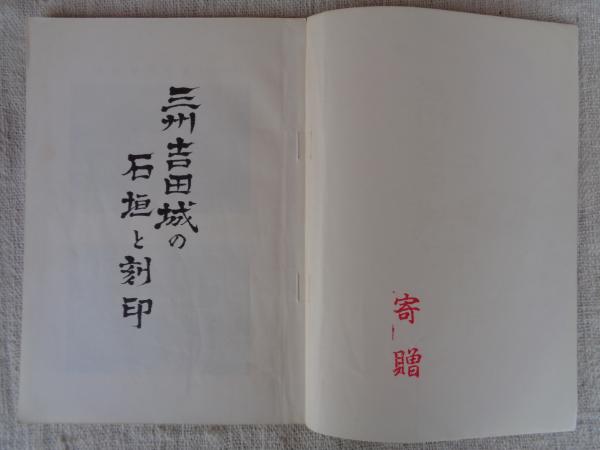 寄贈
三州吉田城の
石垣と刻印